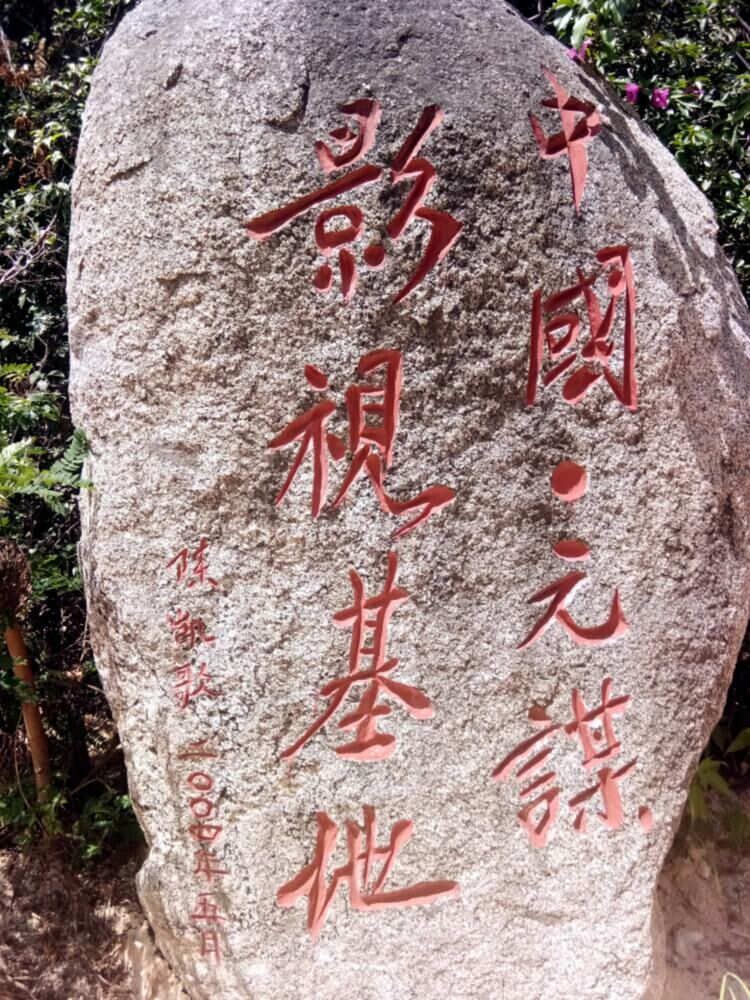 中國·元謀
影視基地
陈凱歌 二〇〇四年五月